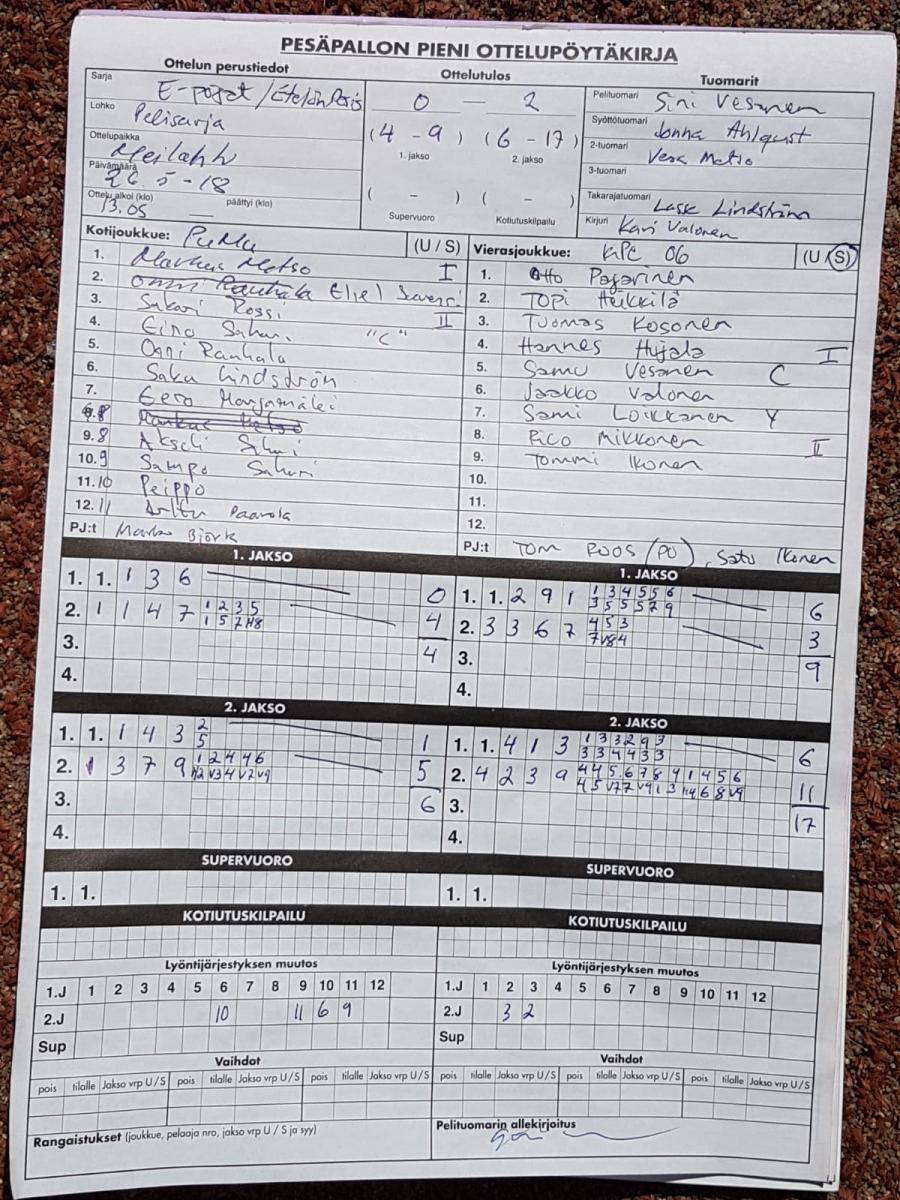 PESÄPALLON PIENI OTTELUPÖYTÄKIRJA
Ottelun perustiedot
Ottelutulos
Tuomarit
Sarja E-pojat /
Lohko Pelisarja
Ottelupaikka
Päivämäärä 26. 5 -18
Ottelu alkoi (klo) 13.05 päättyi (klo) —
0 — 2
(4 - 9) (6 - 17)
1. jakso 2. jakso
( - ) ( - )
Supervuoro Kotiutuskilpailu
Pelituomari Sini Vesanen
Syöttötuomari Jonna Ahlqust
2-tuomari Vesa Metso
3-tuomari
Takarajatuomari Lasse Lindström
Kirjuri Kari Valonen
Kotijoukkue: PuMu (U / S)
1. Markus Metso I
2. Eliel
3. Sakari Rossi II
4. Eino "C"
5. Onni Rauhala
6. Saku Lindström
7. Eero
8
9. 8 Akseli
10. 9 Sampo
11. 10 Peippo
12. 11 Paavola
PJ:t Björk
Vierasjoukkue: KPL 06 (U / S)
1. Otto Pajarinen
2. TOPI Heikkilä
3. Tuomas Kosonen
4. Hannes Hujala I
5. Samu Vesanen C
6. Jaakko Valonen
7. Sami Loikkanen Y
8. Rico Mikkonen II
9. Tommi Ikonen
10.
11.
12.
PJ:t TOM ROOS (PJ), Satu Ikonen
1. JAKSO
1. 1. 1 3 6 0
2. 1 1 4 7 1 2 3 5 4
1 5 7 H8
3. 4
4.
1. JAKSO
1. 1. 2 9 1 1 3 4 5 5 6 6
3 5 5 5 7 9
2. 3 3 6 7 4 5 3 3
7 V8 4
3. 9
4.
2. JAKSO
1. 1. 1 4 3 2 1
5
2. 1 3 7 9 1 2 4 4 6 5
H2 V3 4 V7 V9
3. 6
4.
2. JAKSO
1. 1. 4 1 3 1 3 3 2 9 3 6
3 3 4 4 3 3
2. 4 2 3 9 4 4 5 6 7 8 9 1 4 5 6 11
4 5 V7 7 V9 1 3 H4 6 8 V9
3. 17
4.
SUPERVUORO
1. 1.
SUPERVUORO
1. 1.
KOTIUTUSKILPAILU
KOTIUTUSKILPAILU
Lyöntijärjestyksen muutos
1.J 1 2 3 4 5 6 7 8 9 10 11 12
2.J 10 11 6 9
Sup
Lyöntijärjestyksen muutos
1.J 1 2 3 4 5 6 7 8 9 10 11 12
2.J 3 2
Sup
Vaihdot
pois tilalle Jakso vrp U / S pois tilalle Jakso vrp U / S pois tilalle Jakso vrp U / S
Vaihdot
pois tilalle Jakso vrp U / S pois tilalle Jakso vrp U / S pois tilalle Jakso vrp U / S
Rangaistukset (joukkue, pelaaja nro, jakso vrp U / S ja syy)
Pelituomarin allekirjoitus